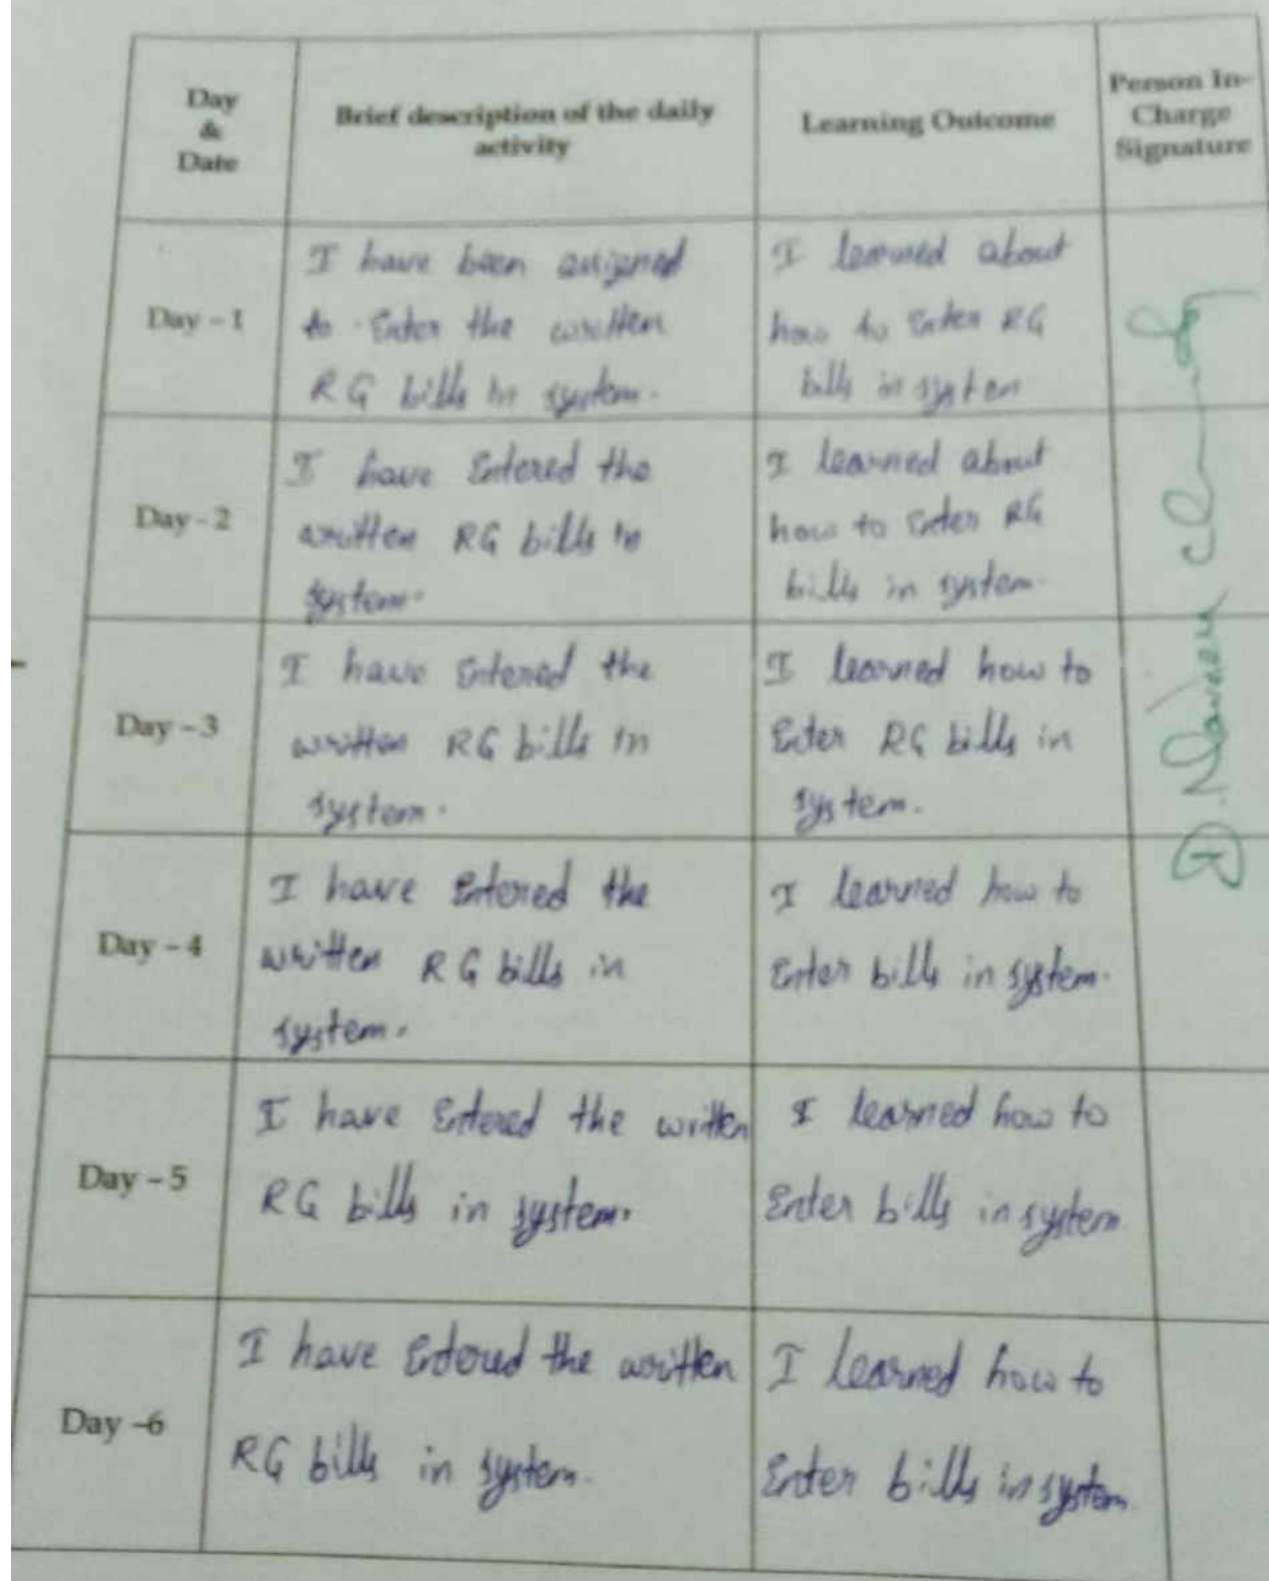 Day
&
Date
Brief description of the daily
activity
Learning Outcome
Person In-
Charge
Signature
Day - 1
I have been assigned
to Enter the written
RG bills in system.
I learned about
how to Enter RG
bills in system
Day - 2
I have Entered the
written RG bills in
system.
I learned about
how to Enter RG
bills in system.
Day - 3
I have Entered the
written RG bills in
system.
I learned how to
Enter RG bills in
system.
Day - 4
I have Entered the
written RG bills in
system.
I learned how to
Enter bills in system.
Day - 5
I have Entered the written
RG bills in system.
I learned how to
Enter bills in system
Day -6
I have Entered the written
RG bills in system.
I learned how to
Enter bills in system